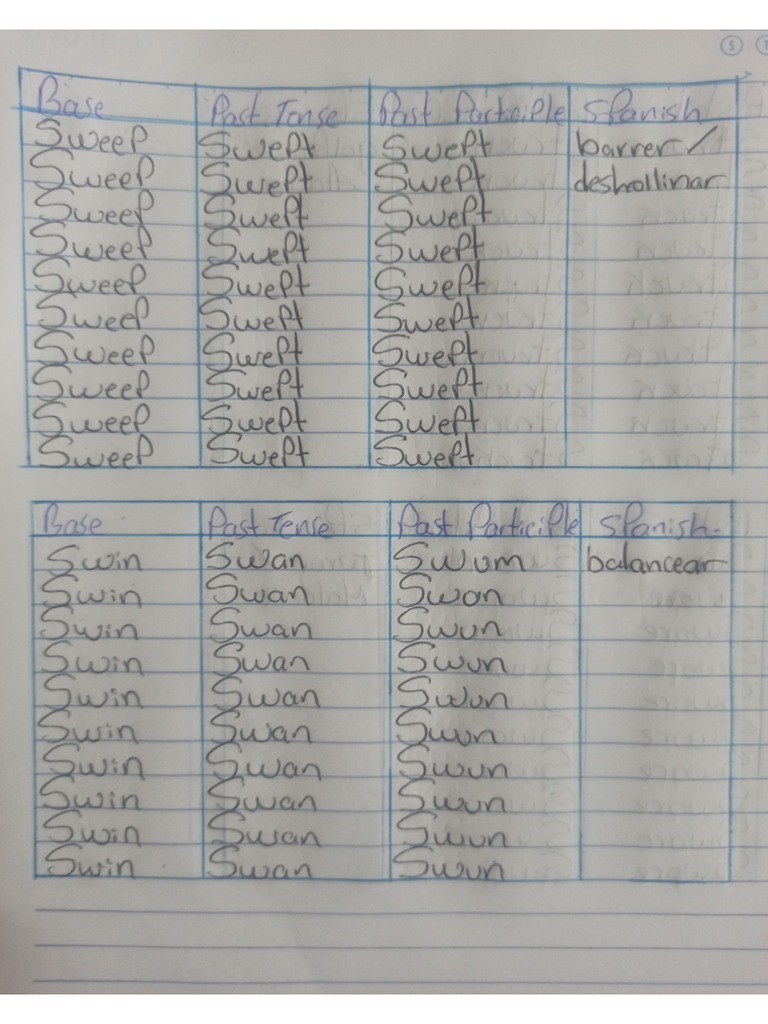 Base Past Tense Past Participle Spanish
Sweep Swept Swept barrer/
Sweep Swept Swept deshollinar
Sweep Swept Swept
Sweep Swept Swept
Sweep Swept Swept
Sweep Swept Swept
Sweep Swept Swept
Sweep Swept Swept
Sweep Swept Swept
Sweep Swept Swept
Base Past Tense Past Participle Spanish
Swin Swan Swum balancear
Swin Swan Swun
Swin Swan Swun
Swin Swan Swun
Swin Swan Swun
Swin Swan Swun
Swin Swan Swun
Swin Swan Swun
Swin Swan Swun
Swin Swan Swun